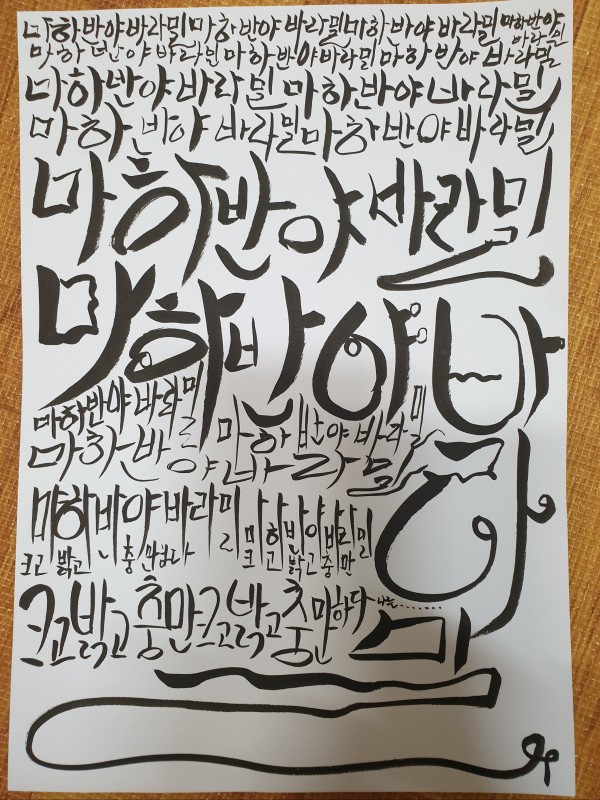 마하반야바라밀 마하반야 바라밀 마하반야 바라밀 마하반야 바라밀
마하반야 바라밀 마하반야바라밀 마하 반야 바라밀
마하반야 바라밀 마하반야 바라밀
마하반야 바라밀 마하 반야 바라밀
마하반야바라밀
마하반야 바라밀
마하반야바라밀
마하반야바라밀
마하반야바라밀
마하반야바라밀 마하반야바라밀
크고 밝고 충만하다 크고 밝고 충만
크고 밝고 충만 크고 밝고 충만하다 나는.......